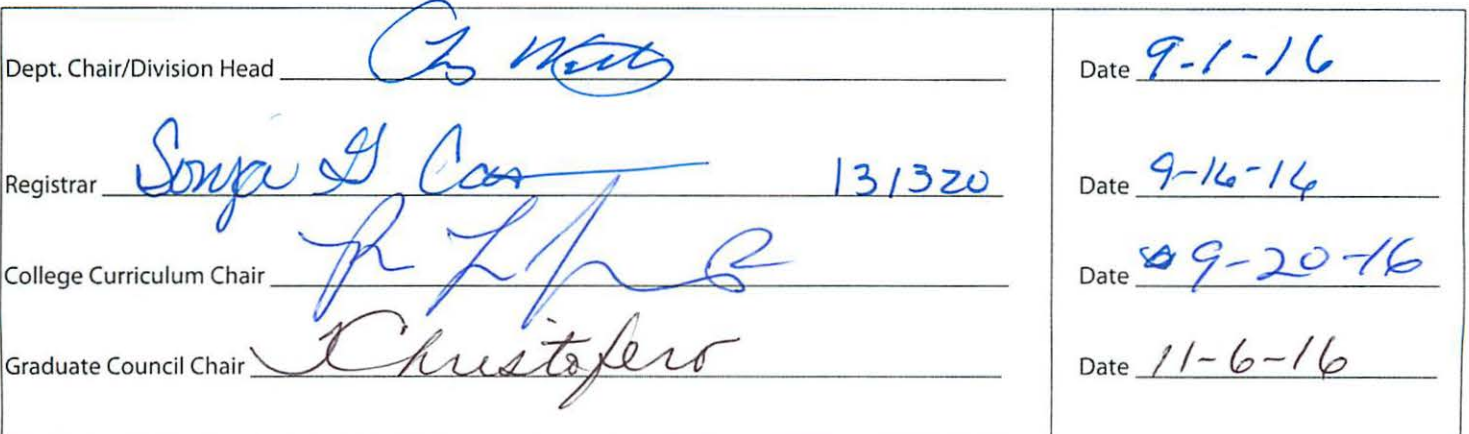 Dept. Chair/Division Head Date 9-1-16
Registrar Sonja G 131320 Date 9-16-16
College Curriculum Chair Date 9-20-16
Graduate Council Chair Christofero Date 11-6-16